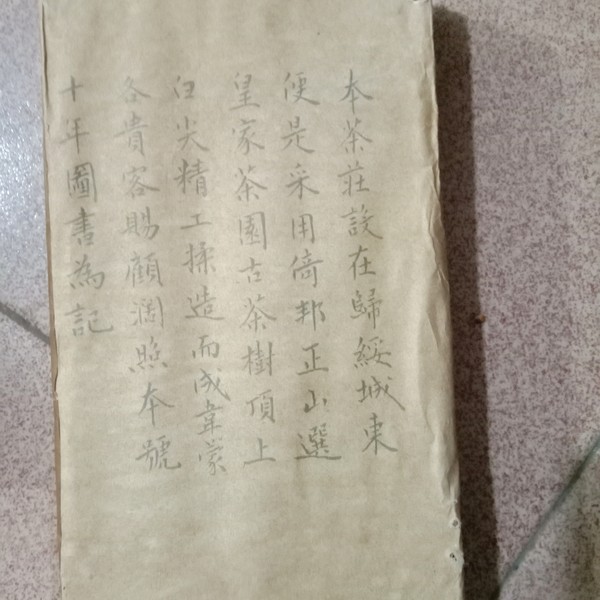 本茶莊設在歸綏城東
便是采用倚邦正山選
皇家茶園古茶樹頂上
白尖精工揉造而成韋蒙
各貴客賜顧溷照本號
十年圖書為記